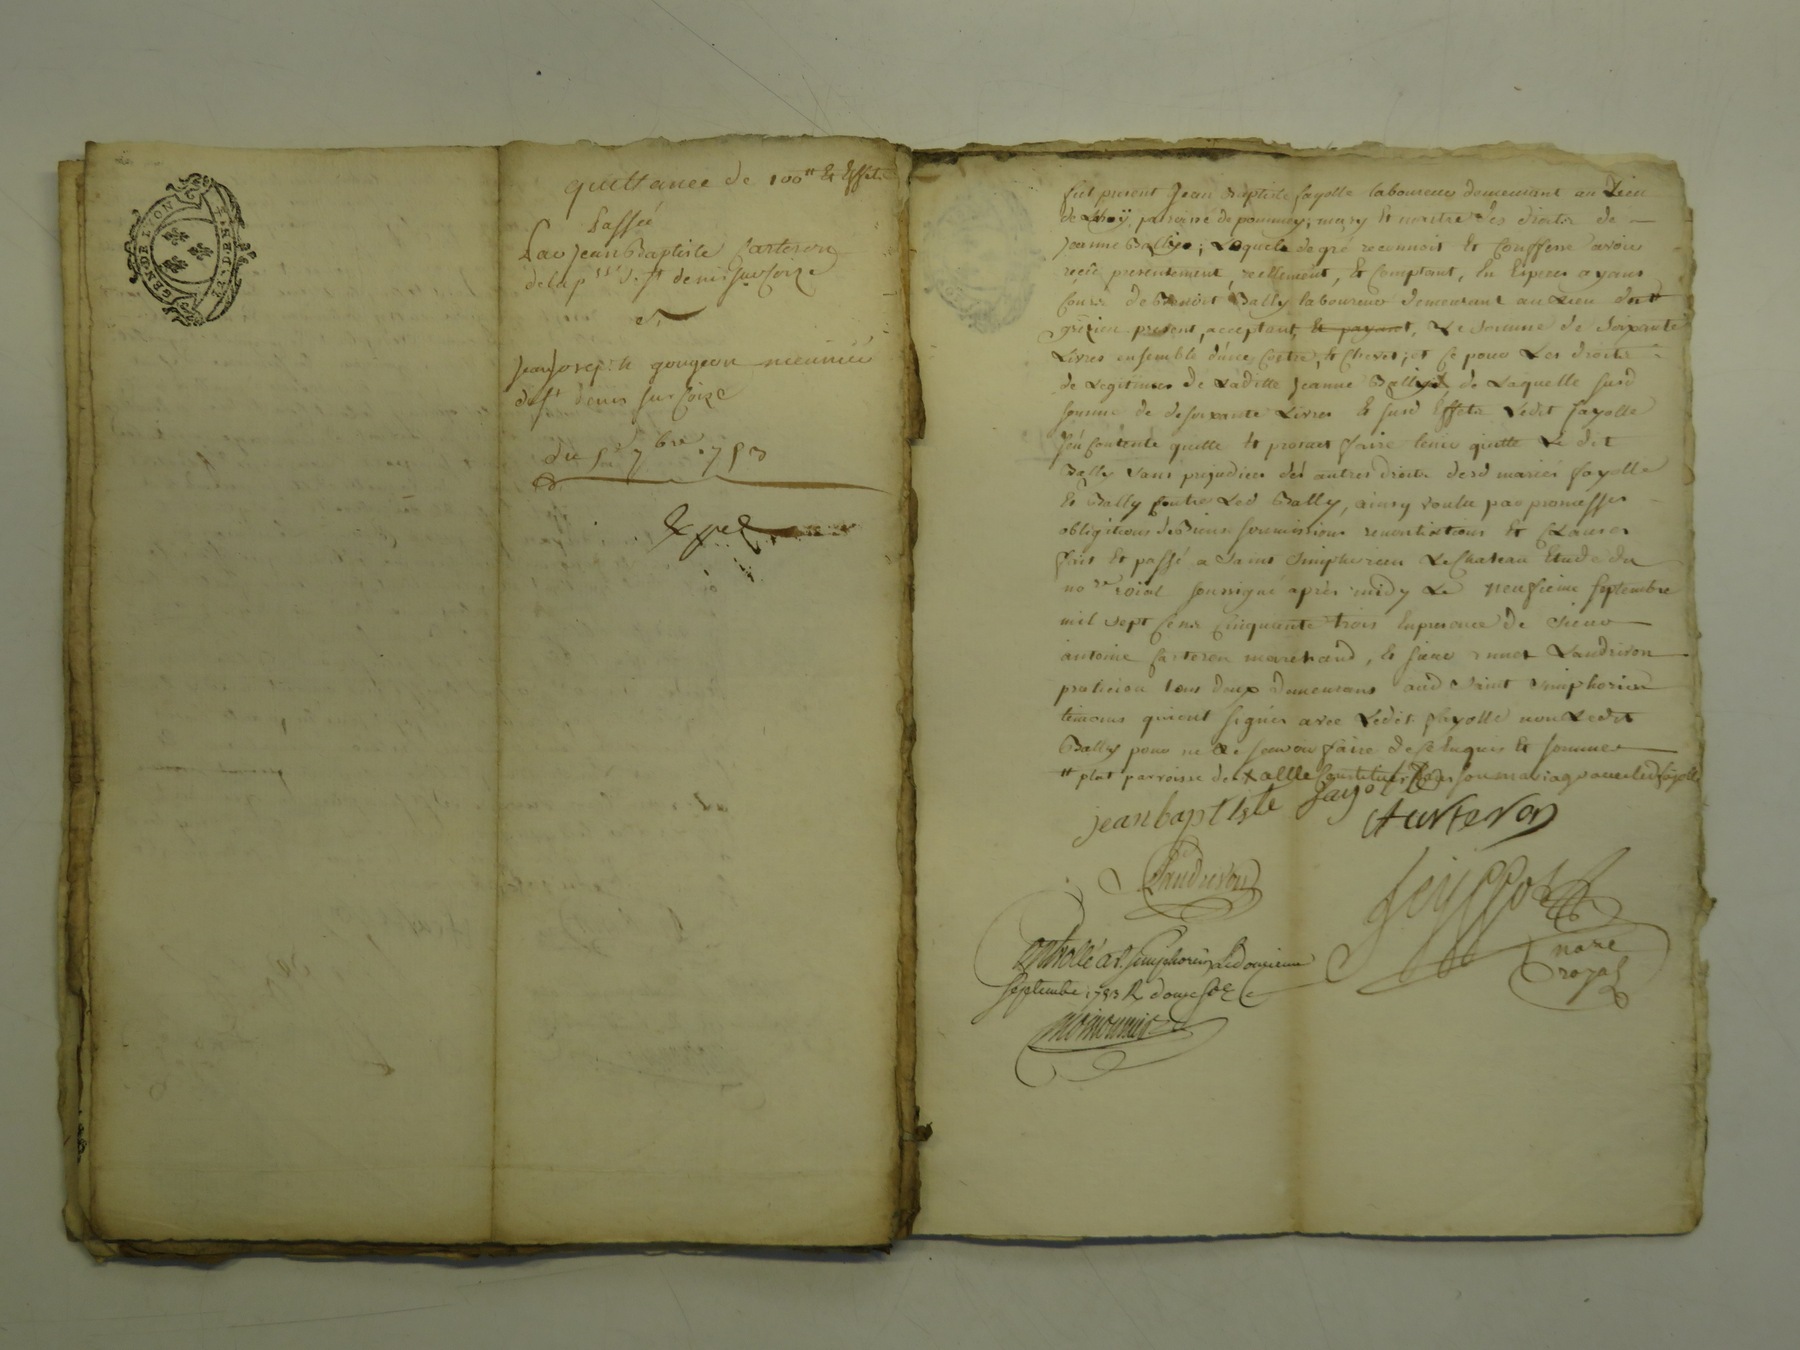 GEN DE LION
quittance de 100# et Effets
Passée
Par Jean Baptiste Carteron
de la psse de st denis sur Coize
a
Jean Joseph gougeon meunier
de st denis sur Coize
du 7bre 1753
Expé
fut present Jean Baptiste fayolle laboureur demeurant au Lieu
de paroisse de pommey, mary et maitre des droits de
Jeanne Bally; Lequel de gré reconnoit et Confesse avoir
récû presentement reellement, et Comptant, En Especes ayans
Cours de Benoit Bally laboureur demeurant au Lieu du #
grézieu present, acceptant, et payant, La Somme de Soixante
Livres ensemble d'une Coetre, et Chevet; et Ce pour Les droits
de Legitimes de Laditte Jeanne Bally x de Laquelle susd
somme de de soixante Livres et susd Effets Ledit fayolle
s'en Contente quitte et promet faire tenir quitte Le dit
Bally sans prejudice des autres droits desd mariés fayolle
et Bally Contre Led Bally, ainsy voulu par promesses
obligations de Biens soumissions renontiations et Clauses
fait et passé a Saint Simphorien Le Chateau Etude du
nore roial soussigné après midy Le neufieme septembre
mil sept Cens Cinquante trois En presence de Sieur
antoine Carteron marchand, et sieur Landrivon
praticien tous deux demeurans aud Saint Simphorien
temoins qui ont signés avec Ledit fayolle non Ledit
Bally pour ne Le sçavoir faire de Ce Enquis et sommé
# plat parroisse de x a elle Constitués dans son mariage avec led fayolle
jean baptiste fayolle
Carteron
Landrivon
nore
royal
Controllé a st. Simphorien Le douzieme
septembre 1753 R douze sols